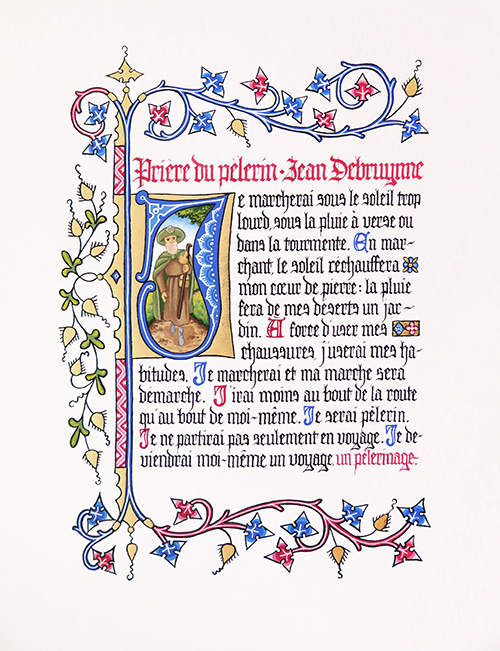 Prière du pèlerin · Jean Debruynne
Je marcherai sous le soleil trop
lourd, sous la pluie à verse ou
dans la tourmente. En mar-
chant, le soleil réchauffera
mon cœur de pierre : la pluie
fera de mes deserts un jar-
din. A force d'user mes
chaussures, j'userai mes ha-
bitudes. Je marcherai et ma marche sera
démarche. J'irai moins au bout de la route
qu'au bout de moi-même. Je serai pèlerin.
Je ne partirai pas seulement en voyage. Je de-
viendrai moi-même un voyage, un pèlerinage.